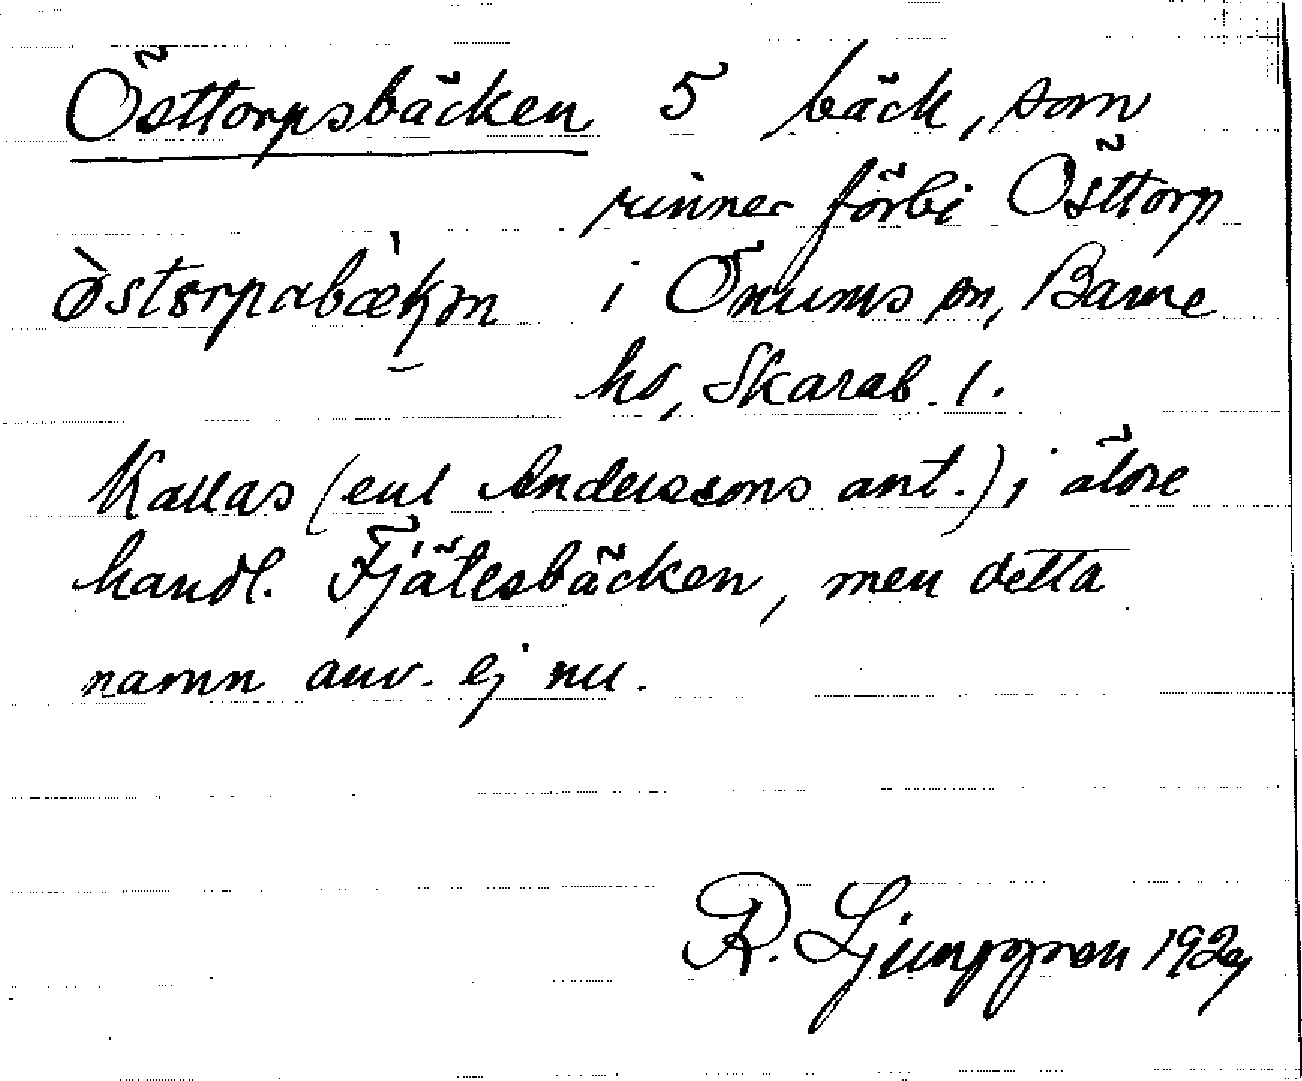 Östtorpsbäcken 5 bäck, som
rinner förbi Östtorp
òstorpabæ̀kən i Önums sn, Barne
hd, Skarab. l.
Kallas (enl Anderssons ant.) i äldre
handl. Fjätesbäcken, men detta
namn anv. ej nu.
R. Ljunggren 1929